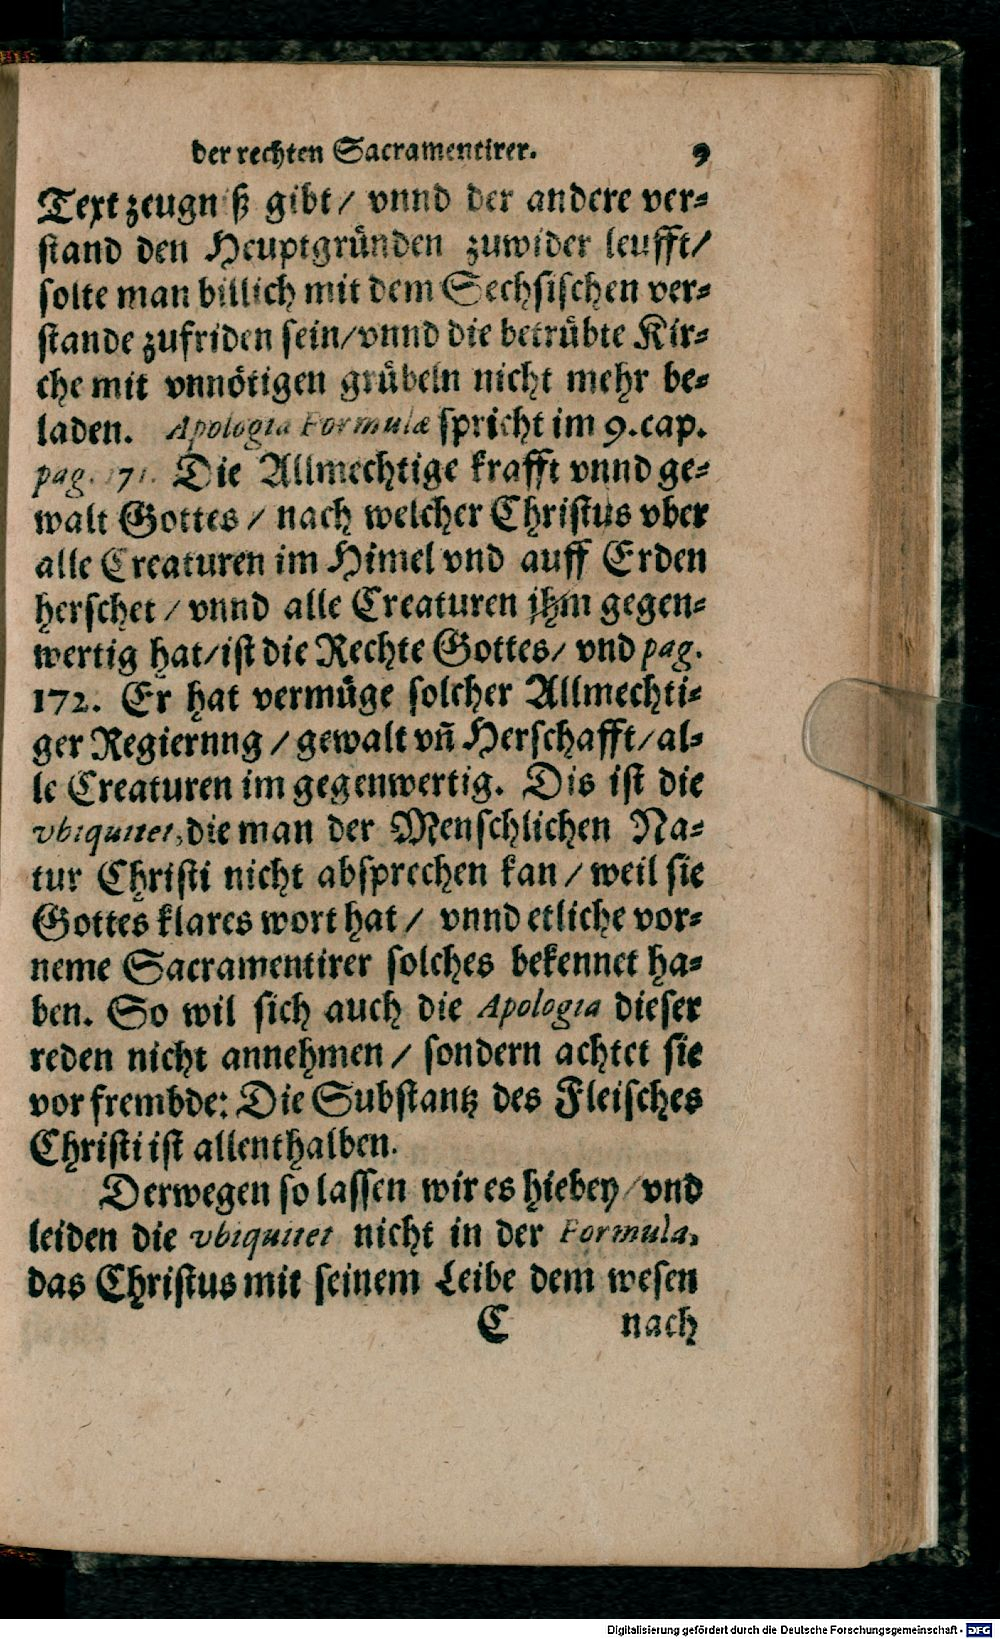 der rechten Sacramentirer. 9
Text zeugniß gibt / vnnd der andere ver⸗
stand den Heuptgründen zuwider leufft/
solte man billich mit dem Sechsischen ver⸗
stande zufriden sein/vnnd die betrübte Kir⸗
che mit vnnötigen grübeln nicht mehr be⸗
laden. Apologia Formulæ spricht im 9.cap.
pag. 171. Die Allmechtige krafft vnnd ge⸗
walt Gottes / nach welcher Christus vber
alle Creaturen im Himel vnd auff Erden
herschet / vnnd alle Creaturen jhm gegen⸗
wertig hat/ist die Rechte Gottes/ vnd pag.
172. Er hat vermüge solcher Allmechti⸗
ger Regiernng / gewalt vñ Herschafft/al⸗
le Creaturen im gegenwertig. Dis ist die
vbiquitet, die man der Menschlichen Na⸗
tur Christi nicht absprechen kan / weil sie
Gottes klares wort hat / vnnd etliche vor⸗
neme Sacramentirer solches bekennet ha⸗
ben. So wil sich auch die Apologia dieser
reden nicht annehmen / sondern achtet sie
vor frembde: Die Substantz des Fleisches
Christi ist allenthalben.
Derwegen so lassen wir es hiebey/vnd
leiden die vbiquitet nicht in der Formula,
das Christus mit seinem Leibe dem wesen
C nach
Digitalisierung gefördert durch die Deutsche Forschungsgemeinschaft - DFG